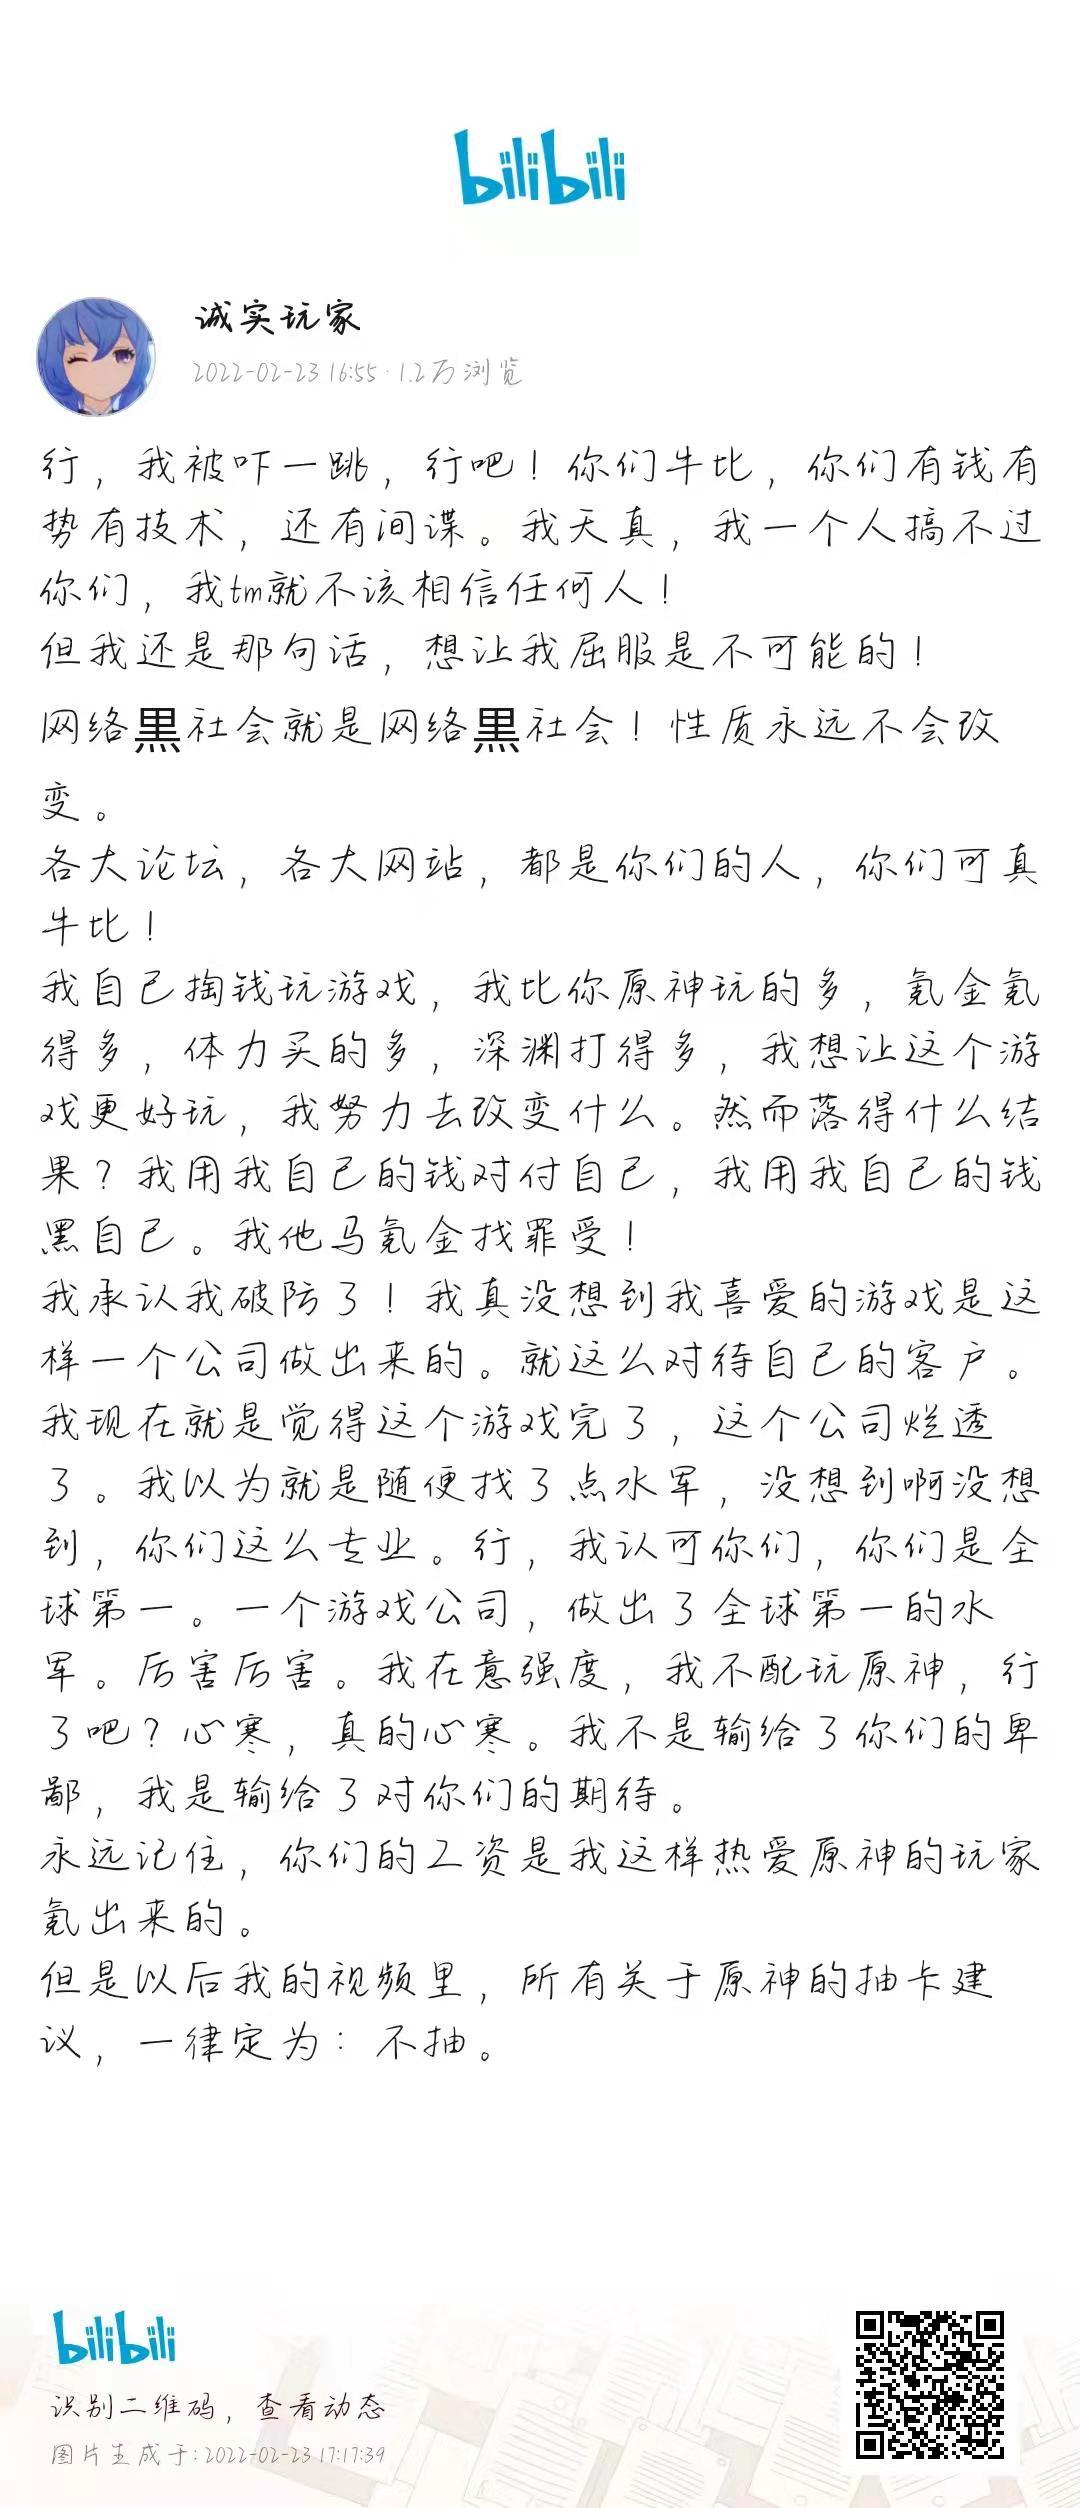 bilibili
诚实玩家
2022-02-23 16:55·1.2万浏览
行，我被吓一跳，行吧！你们牛比，你们有钱有
势有技术，还有间谍。我天真，我一个人搞不过
你们，我tm就不该相信任何人！
但我还是那句话，想让我屈服是不可能的！
网络黒社会就是网络黒社会！性质永远不会改
变。
各大论坛，各大网站，都是你们的人，你们可真
牛比！
我自己掏钱玩游戏，我比你原神玩的多，氪金氪
得多，体力买的多，深渊打得多，我想让这个游
戏更好玩，我努力去改变什么。然而落得什么结
果？我用我自己的钱对付自己，我用我自己的钱
黑自己。我他马氪金找罪受！
我承认我破防了！我真没想到我喜爱的游戏是这
样一个公司做出来的。就这么对待自己的客户。
我现在就是觉得这个游戏完了，这个公司烂透
了。我以为就是随便找了点水军，没想到啊没想
到，你们这么专业。行，我认可你们，你们是全
球第一。一个游戏公司，做出了全球第一的水
军。厉害厉害。我在意强度，我不配玩原神，行
了吧？心寒，真的心寒。我不是输给了你们的卑
鄙，我是输给了对你们的期待。
永远记住，你们的工资是我这样热爱原神的玩家
氪出来的。
但是以后我的视频里，所有关于原神的抽卡建
议，一律定为：不抽。
bilibili
识别二维码，查看动态
图片生成于：2022-02-23 17:17:39